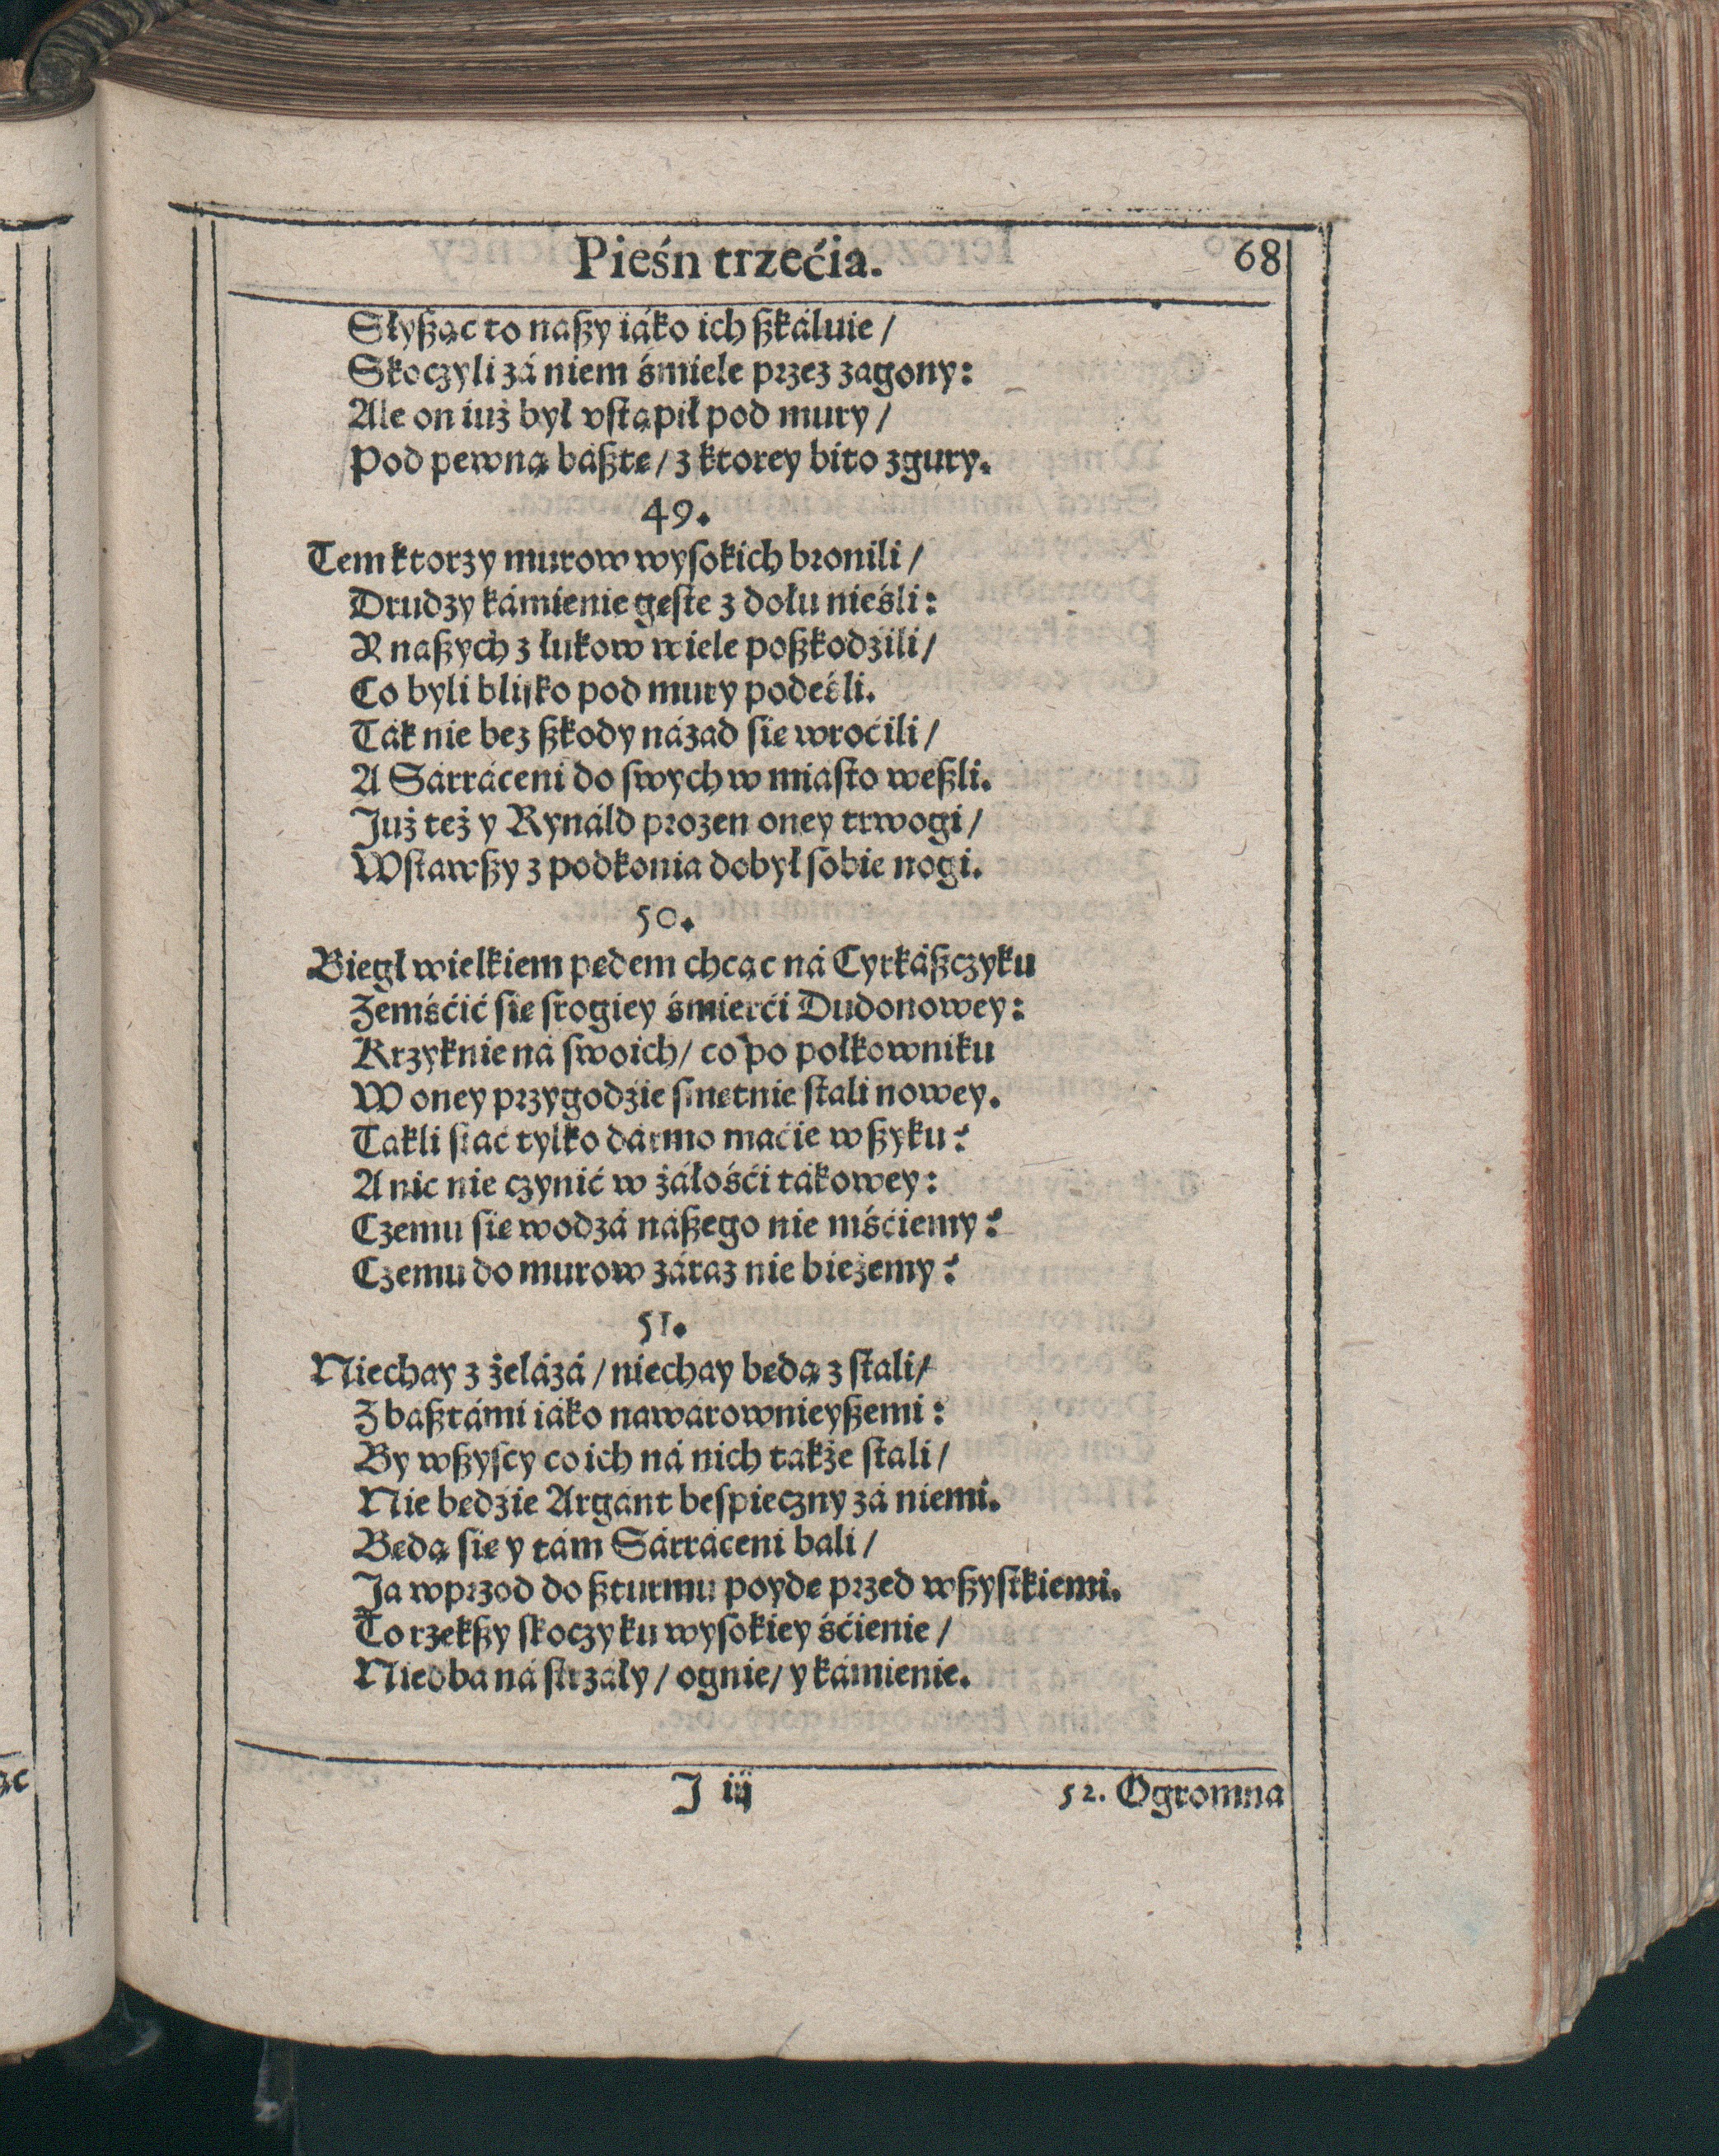 Pieśń trzećia. 68
Słyßąc to naßy iáko ich ßkáluie /
Skoczyli zá niem śmiele przez zagony:
Ale on iuż był vstąpił pod mury /
Pod pewną báßtę / z ktorey bito zgury.
49.
Tem ktorzy murow wysokich bronili /
Drudzy kámienie gęste z dołu nieśli:
Y naßych z łukow wiele poßkodźili /
Co byli blisko pod mury podeśli.
Ták nie bez ßkody názad się wroćili /
A Sárráceni do swych w miasto weßli.
Już też y Rynáld prozen oney trwogi /
Wstawßy z podkonia dobył sobie nogi.
50.
Biegł wielkiem pędem chcąc ná Cyrkáßczyku
Zemśćić się srogiey śmierći Dudonowey:
Krzyknie ná swoich / co po połkowniku
W oney przygodźie smętnie stali nowey.
Takli stać tylko dármo maćie w ßyku?
A nic nie czynić w żáłośći tákowey:
Czemu się wodzá náßego nie mśćiemy?
Czemu do murow záraz nie bieżemy?
51.
Niechay z żelázá / niechay będą z stali /
Z baßtámi iáko nawárownieyßemi:
By wßyscy co ich ná nich także stali /
Nie będźie Argánt bespieczny zá niemi.
Będą się y tám Sárráceni bali /
Ja wprzod do ßturmu poydę przed wßystkiemi.
To rzekßy skoczy ku wysokiey śćienie /
Niedba ná strzáły / ognie / y kámienie.
J iij 52. Ogromna
ąc